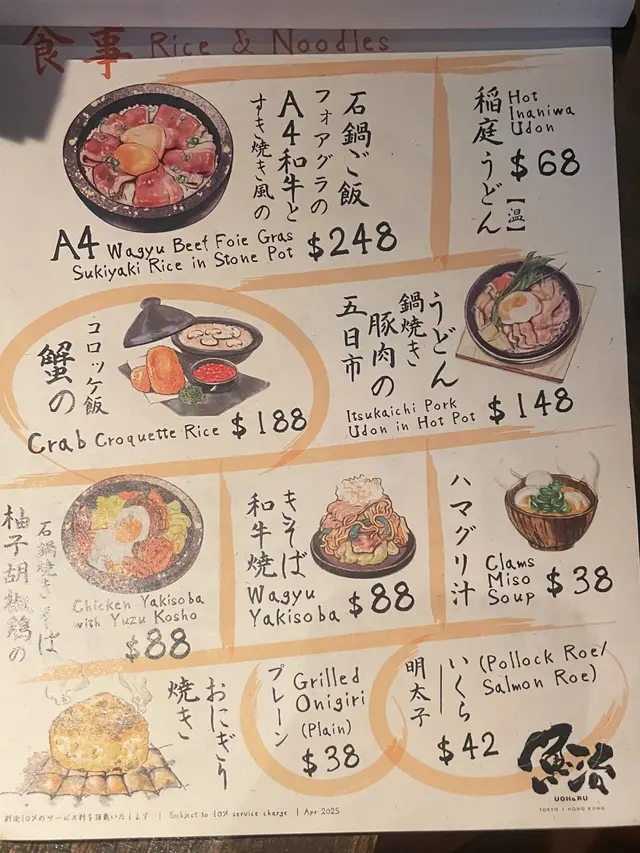 食事 Rice & Noodles
石鍋ご飯
フォアグラの
A4和牛と
すき焼き風の
A4 Wagyu Beef Foie Gras
Sukiyaki Rice in Stone Pot
$248
稲庭うどん
【温】
Hot
Inaniwa
Udon
$68
コロッケ飯
蟹の
Crab Croquette Rice $188
うどん
鍋焼き
豚肉の
五日市
Itsukaichi Pork
Udon in Hot Pot
$148
石鍋焼きそば
柚子胡椒鶏の
Chicken Yakisoba
with Yuzu Kosho
$88
きそば
和牛焼
Wagyu
Yakisoba $88
ハマグリ汁
Clams
Miso
Soup $38
おにぎり
焼き
プレーン
Grilled
Onigiri
(Plain)
$38
いくら
明太子
(Pollock Roe/
Salmon Roe)
$42
魚治
UOHARU
TOKYO | HONG KONG
別途10%のサービス料を頂戴いたします | Subject to 10% service charge | Apr 2025